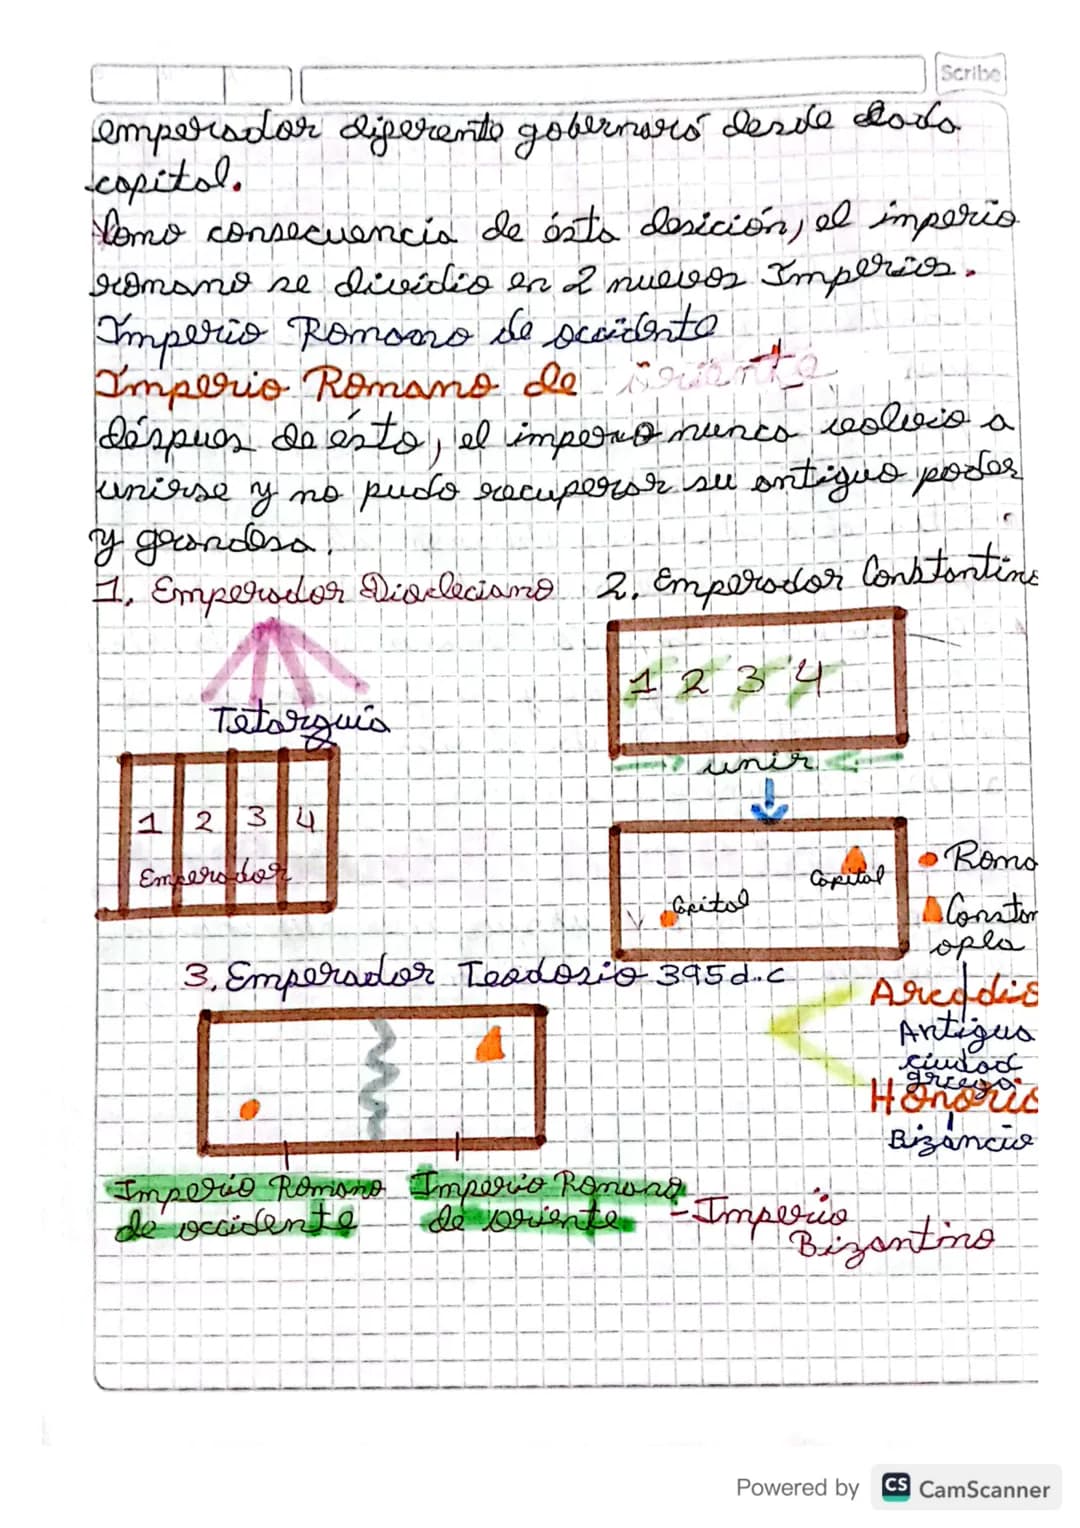 Scribe
emperador diferente gobernará desde cada
capital.
Como consecuencia de ésta desición, el imperio
romano se dividio en 2 nuevos Imperios.
Imperio Romano de occidente
Imperio Romano de oriente
déspues de ésto, el imperio nunca volvio a
unirse y no pudo recuperar su antiguo poder
y grandesa.
1. Emperador Diocleciano
2. Emperador Constantino
Tetarquia
1 2 3 4
Emperador
1 2 3 4
unir
Capital
Capital
Roma
Constan
opla
3. Emperador Teodosio 395 d.c
Arcadio
Antigua
ciudad
griega
Honorio
Bizancio
Imperio Romano
de occidente
Imperio Romano
de oriente
- Imperio
Bizantino
Powered by CS CamScanner